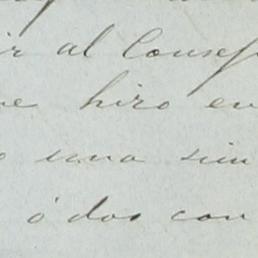 ir al Consej
e hizo en
o una sin
ó dos con